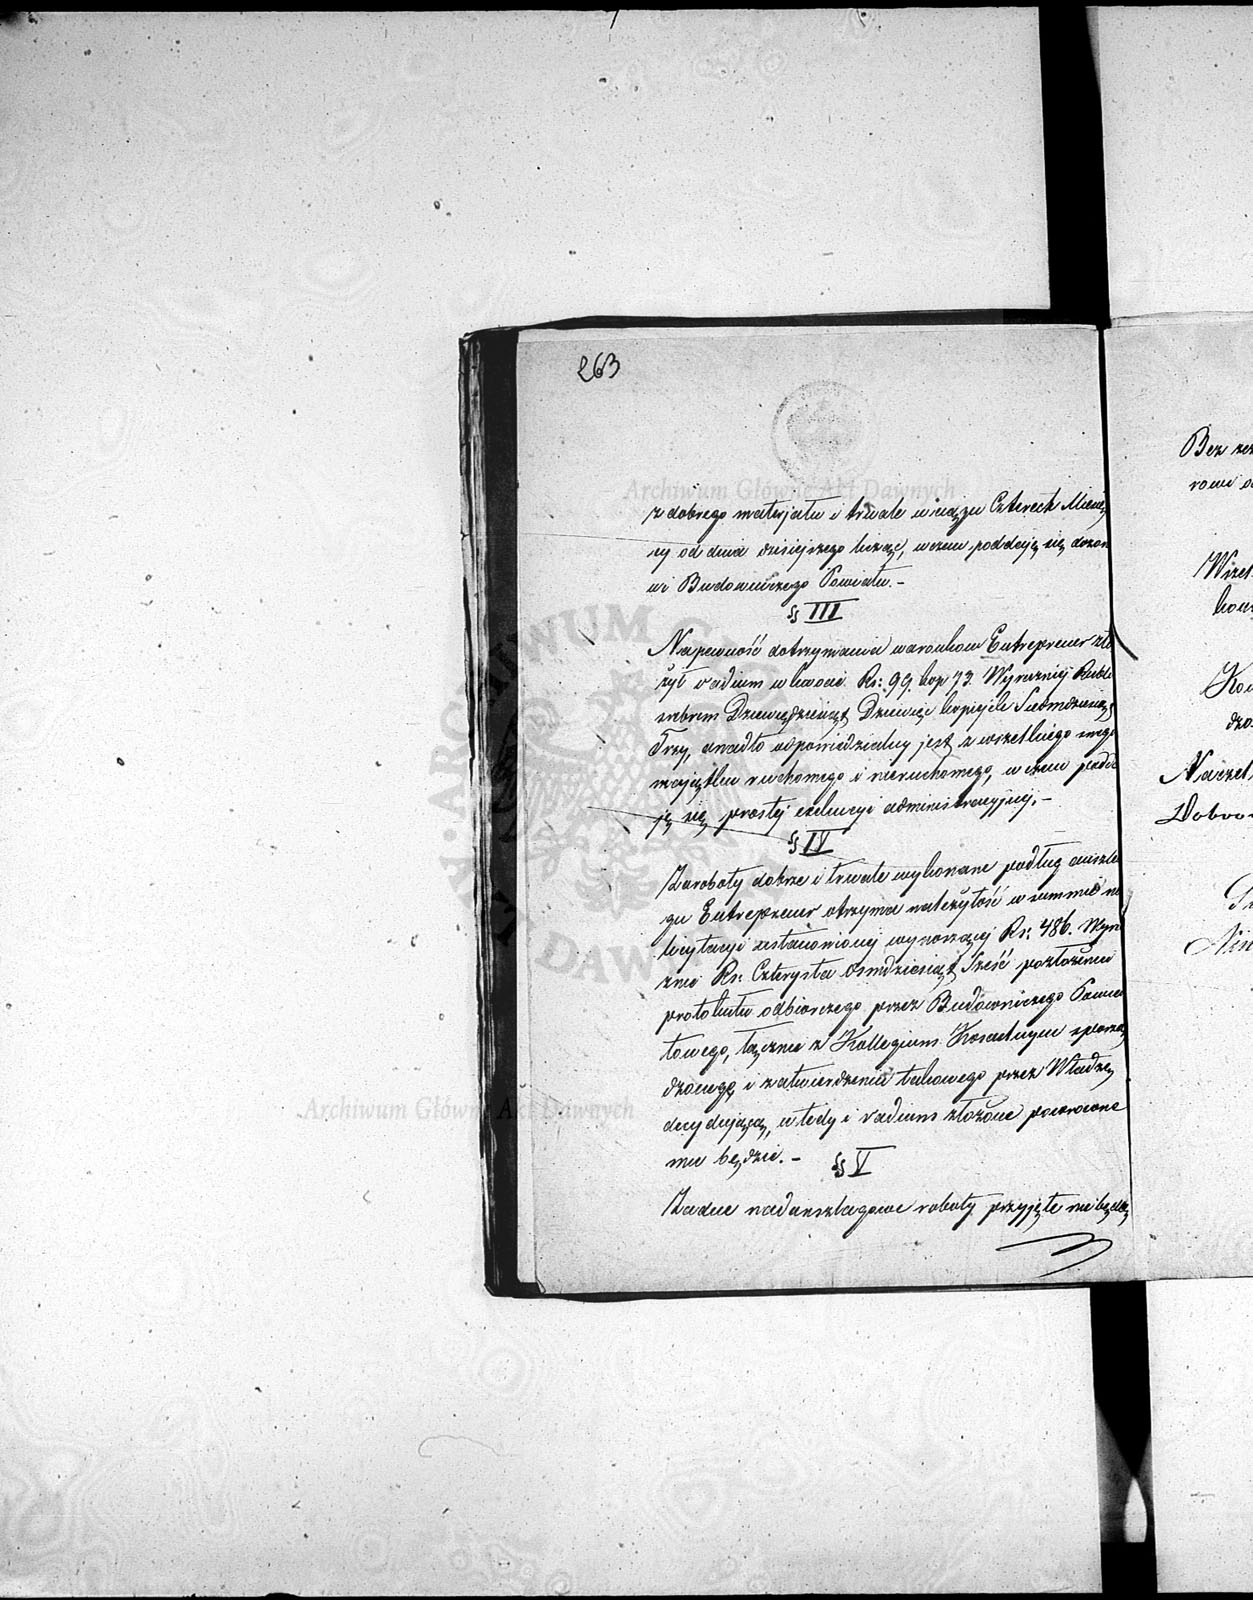 263
z dobrego materjału i trwale w ciągu Czterech Miesię
cy od dnia dzisiejszego licząc, wczem poddają się dozoro
wi Budowniczego Powiatu. –
§ III
Na pewność dotrzymania warunków Entreprener zło
żył vadium w kwocie Rs: 99. kop 73. Wyraźniej Rubli
srebrem Dziewięćdziesiąt Dziewięć kopiejek Siedmdziesiąt
Trzy, a nadto odpowiedzialny jest z wszelkiego swego
majątku ruchomego i nieruchomego, w czem podda
je się prostej exekucyi administracyjnej. –
§ IV
Za roboty dobrze i trwale wykonane podług anszla
gu Entreprener otrzyma należytość w summie na
licytacyi zestanowionej wynoszącej Rs: 486. Wyra
źnie Rs: Czterysta Osmdziesiąt Sześć po złożeniu
protokułu odbiorczego przez Budowniczego Powia
towego, łącznie z Kollegium Kościelnym sporzą
dzonego i zatwierdzeniu takowego przez Władzę
decydującą, wtedy i vadium złożone powrócone
mu będzie. –
§ V
Żadne nadanszlagowe roboty przyjęte nie będą
Bez
rowi
Nin
Archiwum Główne Akt Dawnych
Archiwum Główne Akt Dawnych